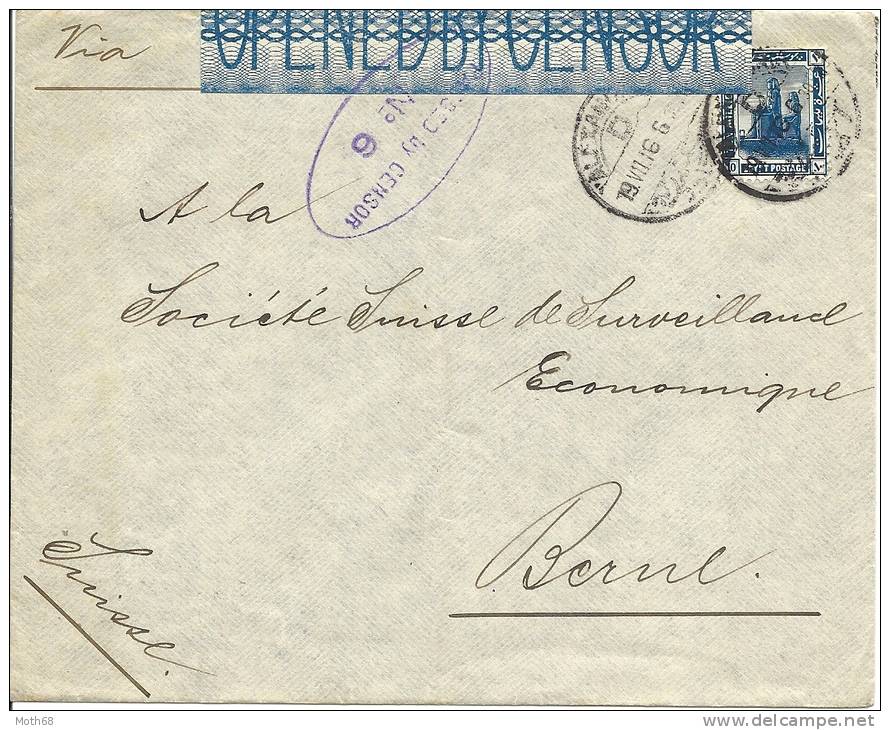 Via
OPENED BY CENSOR
PASSED by CENSOR
No 6
ALEXAN
D
19 VII 16 6
EGYPT POSTAGE
A la
Société Suisse de Surveillance
Economique
Berne.
Suisse.
Moth68
delcampe.net